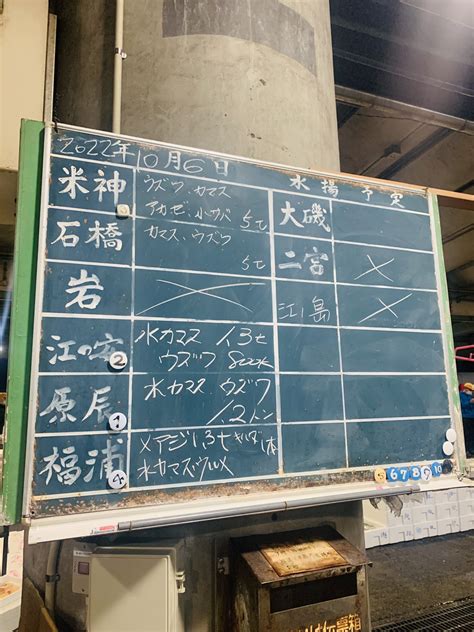 2022年10月6日
水揚予定
米神 ウズワ、カマス
アカゼ、小サバ 5t
石橋 カマス、ウズワ
5t
岩
江の安 2 水カマス 1.3t
ウズワ 800k
原辰 1 水カマス ウズワ
1.2トン
福浦 メアジ1.3t
水カマス
大磯
二宮
江ノ島
6 7 8 9 10